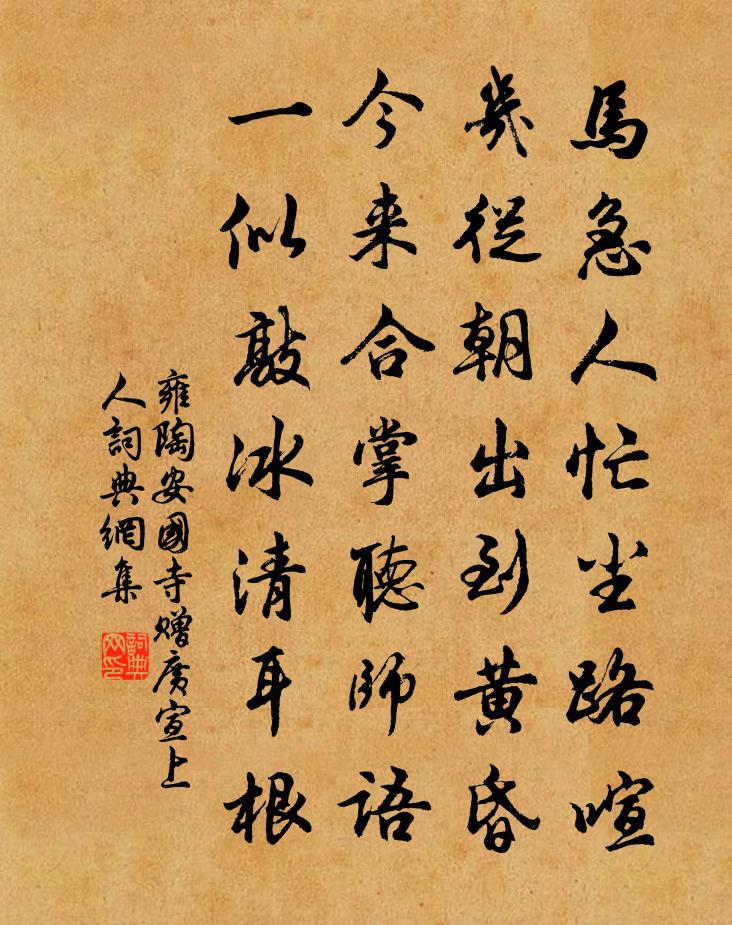 馬急人忙尘路喧
幾從朝出到黃昏
今来合掌聽師語
一似敲冰清耳根
雍陶安國寺赠廣宣上
人詞典網集
詞典
网印